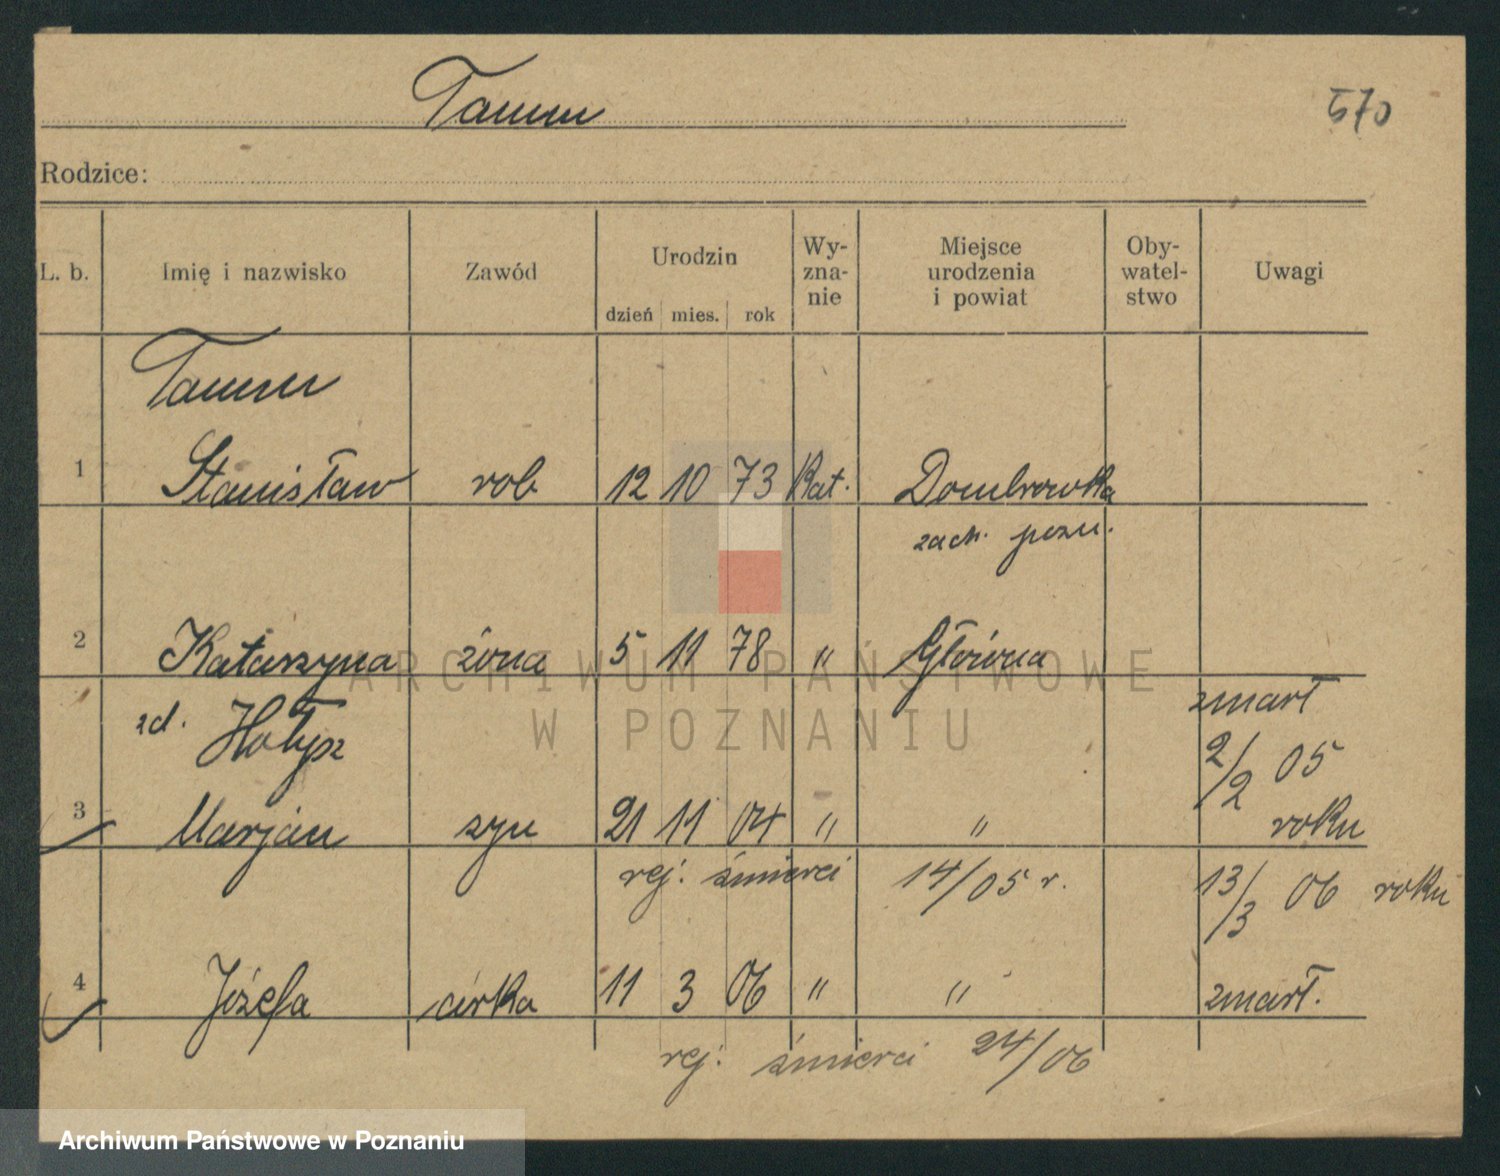 Tamm
570
Rodzice:
L. b. Imię i nazwisko Zawód Urodzin dzień mies. rok Wy-zna-nie Miejsce urodzenia i powiat Oby-watel-stwo Uwagi
Tamm
1 Stanisław rob 12 10 73 Kat. Dombrowka
zach. pozn.
2 Katarzyna żona 5 11 78 " Główna
zd. Hołysz
zmarł
2/2 05
3 Marjan syn 21 11 04 " " roku
rej. śmierci 14/05 r.
13/3 06 roku
4 Józefa córka 11 3 06 " " zmarł.
rej. śmierci 24/06
ARCHIWUM PAŃSTWOWE
W POZNANIU
Archiwum Państwowe w Poznaniu